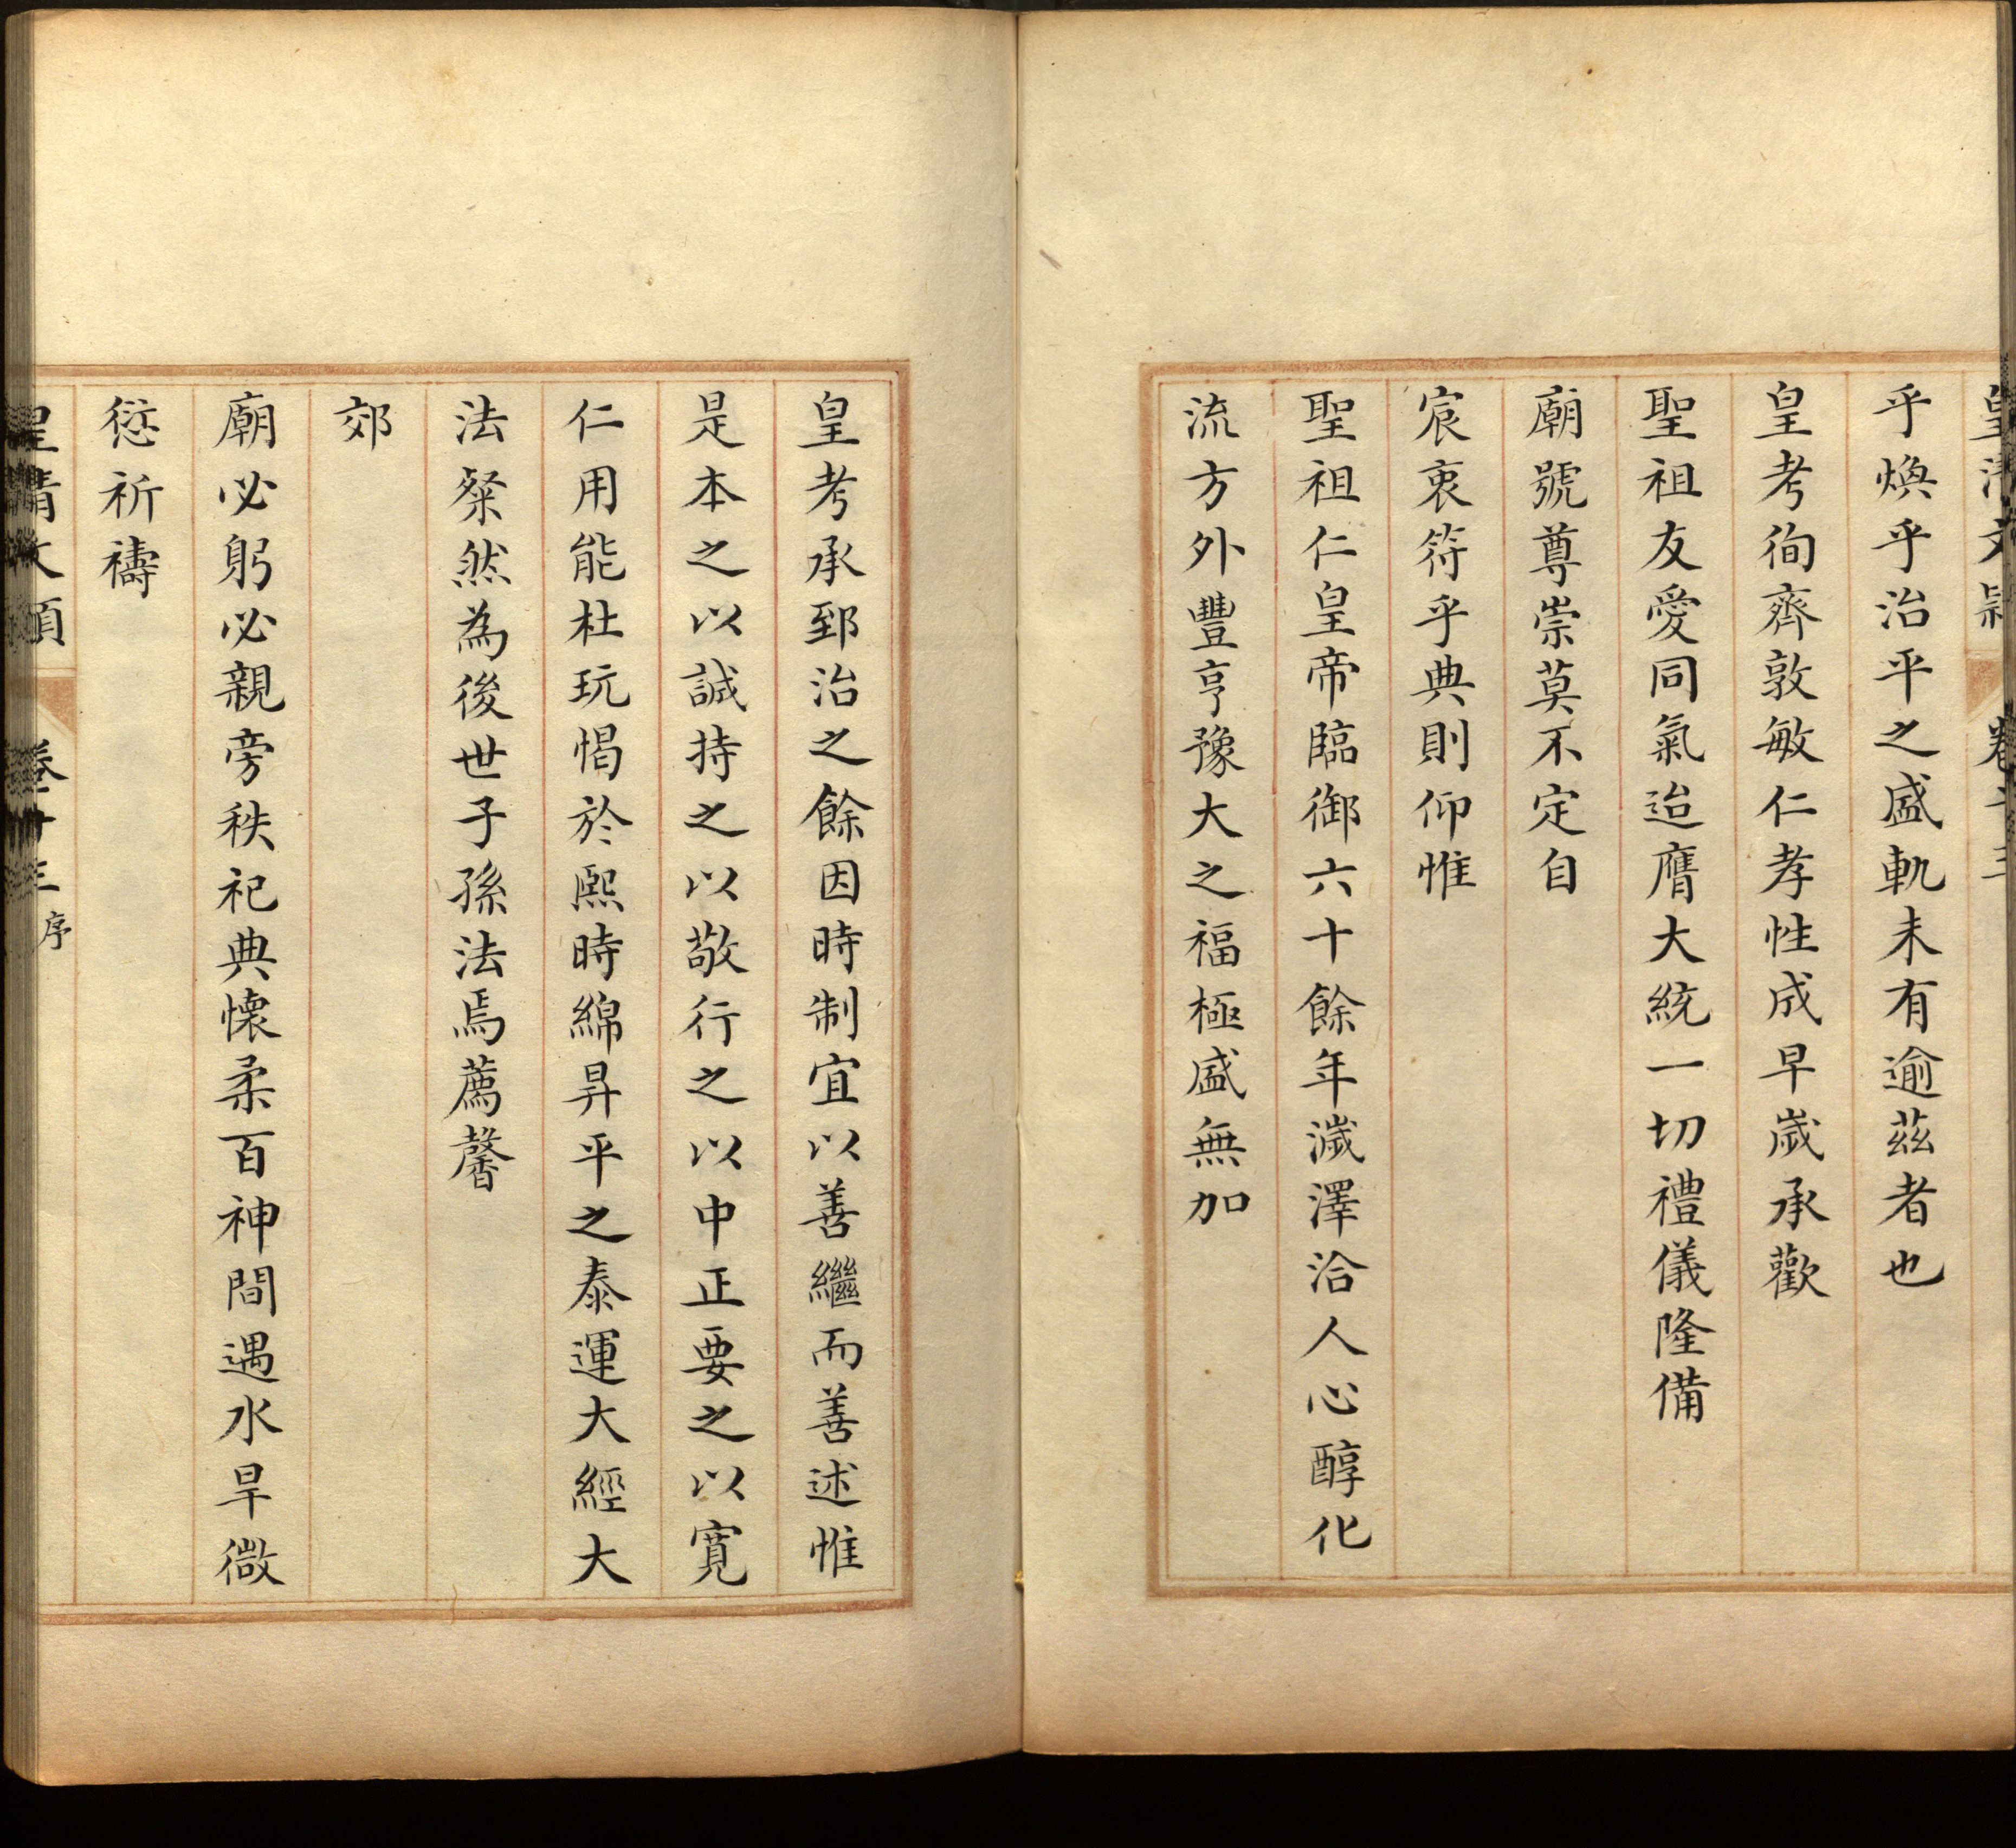 皇清文穎 卷十三
乎煥乎治平之盛軌未有逾茲者也
皇考徇齊敦敏仁孝性成早歲承歡
聖祖友愛同氣迨膺大統一切禮儀隆備
廟號尊崇莫不定自
宸衷符乎典則仰惟
聖祖仁皇帝臨御六十餘年濊澤洽人心醇化
流方外豐亨豫大之福極盛無加
皇考承郅治之餘因時制宜以善繼而善述惟
是本之以誠持之以敬行之以中正要之以寬
仁用能杜玩愒於熙時綿昇平之泰運大經大
法粲然為後世子孫法焉薦馨
郊
廟必躬必親旁秩祀典懷柔百神間遇水旱微
愆祈禱
皇清文穎 卷十三 序